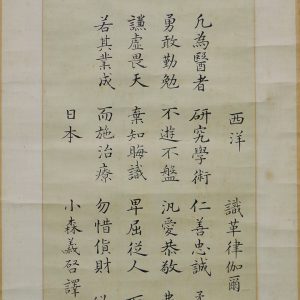 西洋 識革律伽爾
凡為醫者 研究學術 仁善忠誠
勇敢勤勉 不遊不盤 汎愛恭敬
謙虚畏天 棄知晦識 卑屈従人
若其業成 而施治療 勿惜貨財
日本 小森義啓譯